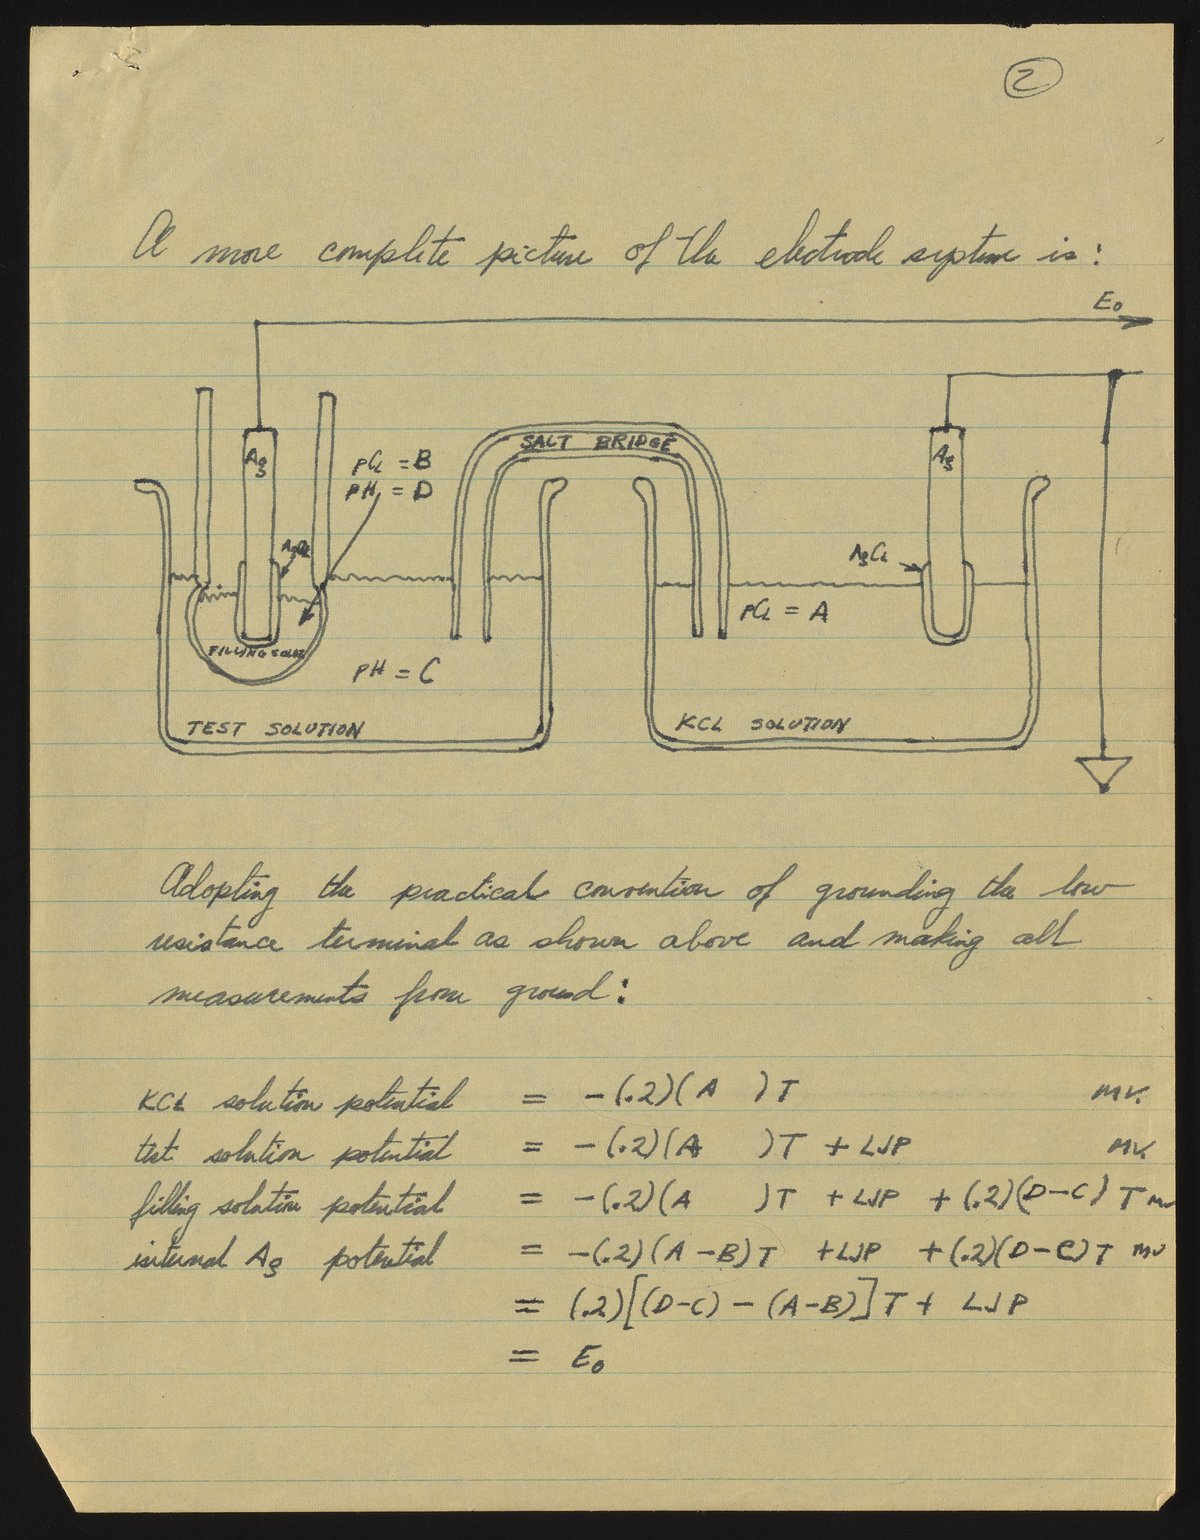 2
A more complete picture of the electrode system is:
E₀
SALT BRIDGE
Ag
pCl = B
pH = D
Ag
AgCl
AgCl
pCl = A
FILLING SOLN
pH = C
TEST SOLUTION
KCL SOLUTION
Adopting the practical convention of grounding the low
resistance terminal as shown above and making all
measurements from ground:
KCL solution potential = -(.2)(A )T mv.
test solution potential = -(.2)(A )T + LJP mv.
filling solution potential = -(.2)(A )T + LJP + (.2)(D-C) T mv
internal Ag potential = -(.2)(A-B)T + LJP + (.2)(D-C)T mv
= (.2)[(D-C) - (A-B)]T + LJP
= E₀